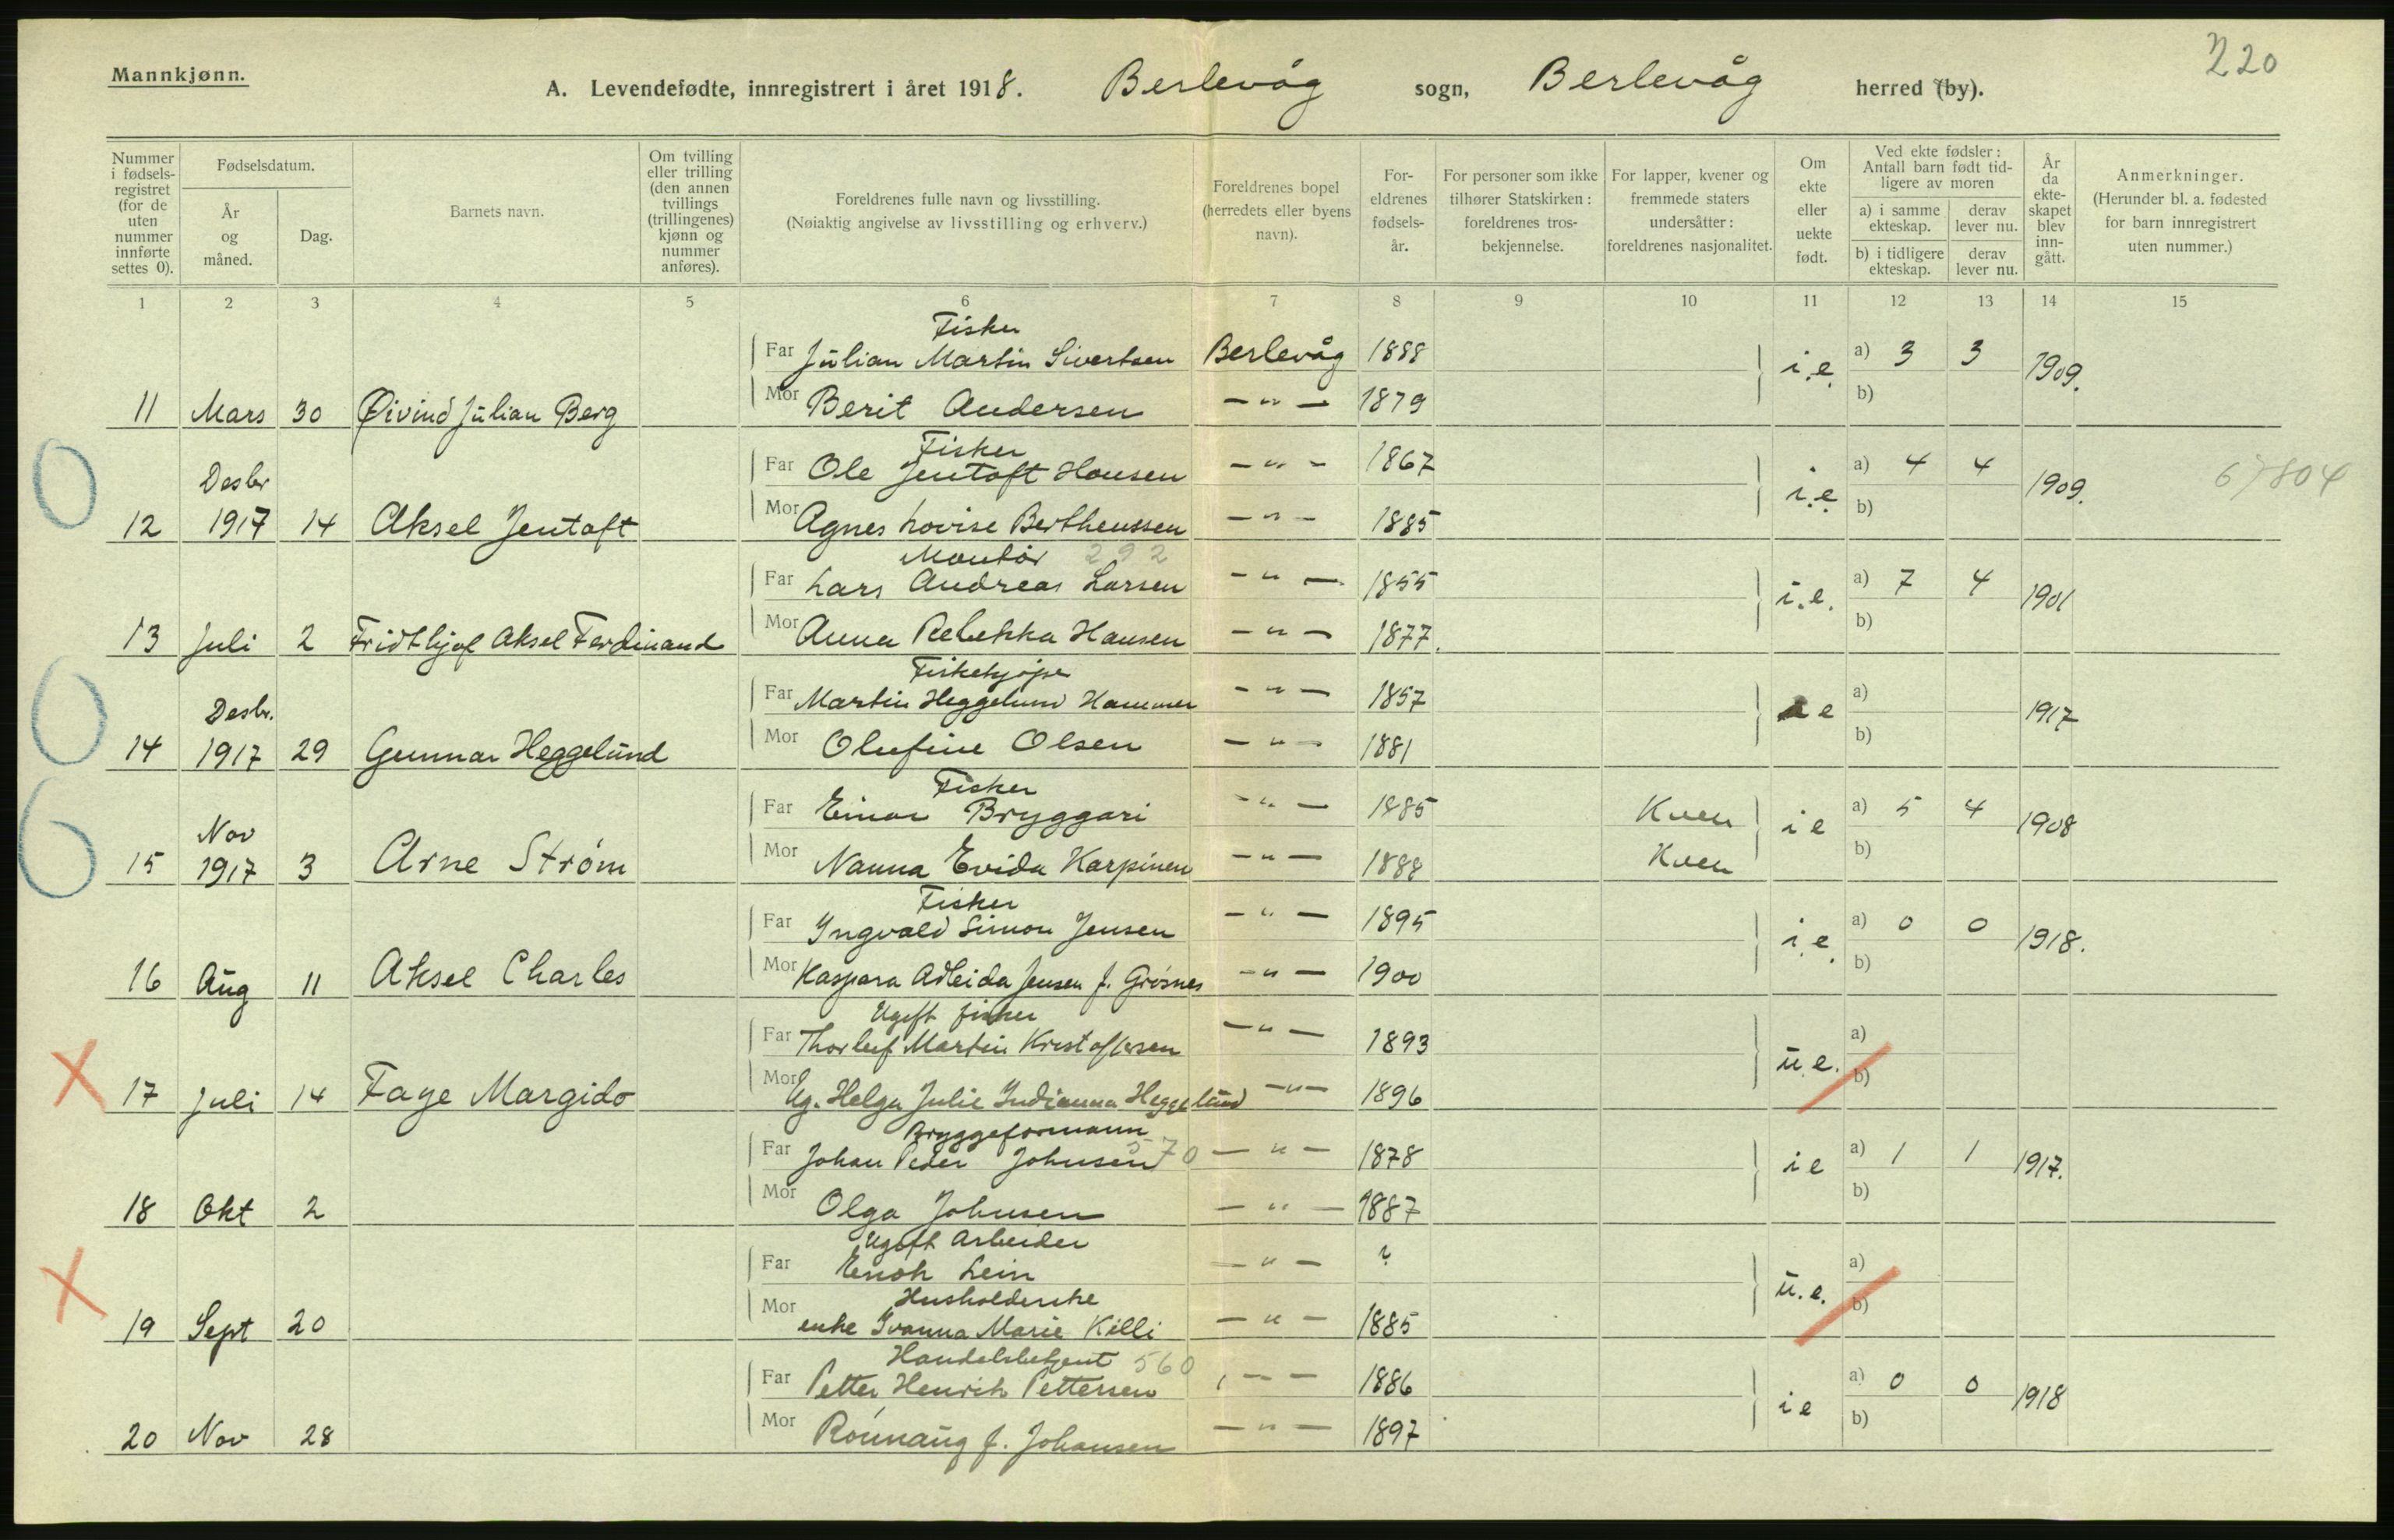 220
Mannkjønn.
A. Levendefødte, innregistrert i året 1918. Berlevåg sogn, Berlevåg herred (by).
Nummer i fødsels-registret (for de uten nummer innførte settes 0).
Fødselsdatum.
År og måned.
Dag.
Barnets navn.
Om tvilling eller trilling (den annen tvillings (trillingenes) kjønn og nummer anføres).
Foreldrenes fulle navn og livsstilling.
(Nøiaktig angivelse av livsstilling og erhverv.)
Foreldrenes bopel (herredets eller byens navn).
For-eldrenes fødsels-år.
For personer som ikke tilhører Statskirken: foreldrenes tros-bekjennelse.
For lapper, kvener og fremmede staters undersåtter: foreldrenes nasjonalitet.
Om ekte eller uekte født.
Ved ekte fødsler: Antall barn født tid-ligere av moren
a) i samme ekteskap. derav lever nu.
b) i tidligere ekteskap. derav lever nu.
År da ekte-skapet blev inn-gått.
Anmerkninger.
(Herunder bl. a. fødested for barn innregistrert uten nummer.)
1 2 3 4 5 6 7 8 9 10 11 12 13 14 15
Fisker
Far Julian Martin Sivertsen Berlevåg 1888 i.e. a) 3 3 1909.
11 Mars 30 Øivind Julian Berg Mor Berit Andersen — " — 1879 b)
Fisker
Desbr Far Ole Jentoft Hansen — " — 1867 i.e a) 4 4 1909. 67804
12 1917 14 Aksel Jentoft Mor Agnes Lovise Bertheussen — " — 1885 b)
Montør 292
Far Lars Andreas Larsen — " — 1855 i.e. a) 7 4 1901
13 Juli 2 Fridthjof Aksel Ferdinand Mor Anna Rebekka Hansen — " — 1877. b)
Fiskekjøper
Desbr. Far Martin Heggelund Hammer — " — 1857 i e a) 1917
14 1917 29 Gunnar Heggelund Mor Olufine Olsen — " — 1881 b)
Fisker
Nov Far Einar Bryggari — " — 1885 Kven i e a) 5 4 1908
15 1917 3 Arne Strøm Mor Nanna Evida Karpinen — " — 1888 Kven b)
Fisker
Far Yngvald Simon Jensen — " — 1895 i.e. a) 0 0 1918.
16 Aug 11 Aksel Charles Mor Kaspara Adleida Jensen f. Grøsnes — " — 1900 b)
Ugift fisker
Far Thorleif Martin Kristoffersen — " — 1893 u.e. a)
17 Juli 14 Faye Margido Mor Ug. Helga Julie Indianna Heggelund — " — 1896 b)
Bryggeformann
Far Johan Peder Johnsen 570 — " — 1878 i e a) 1 1 1917.
18 Okt 2 Mor Olga Johnsen — " — 1887 b)
Ugift Arbeider
Far Enok Lein — " — ? u.e. a)
Husholderske
19 Sept 20 Mor enke Ivanna Marie Killi — " — 1885 b)
Handelsbetjent 560
Far Petter Henrik Pettersen — " — 1886 i e a) 0 0 1918
20 Nov 28 Mor Rónnaug f. Johansen — " — 1897 b)